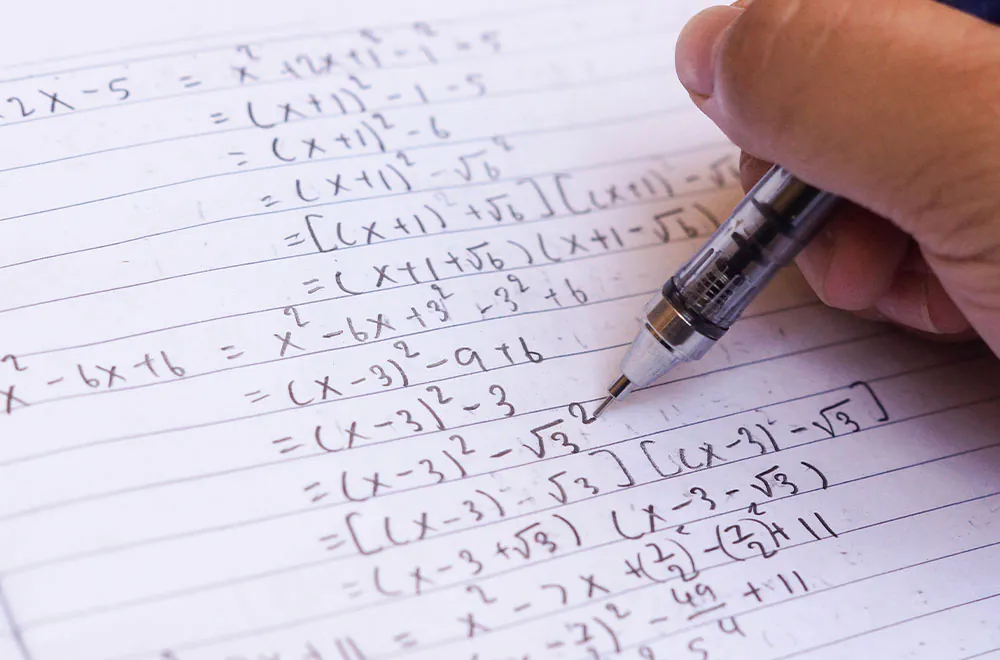 2x - 5 = x² + 2x + 1² - 1² - 5
= (x+1)² - 1 - 5
= (x+1)² - 6
= (x+1)² - √6²
= [(x+1) + √6][(x+1) - √6
= (x+1+√6)(x+1-√6)
x² - 6x + 6 = x² - 6x + 3² - 3² + 6
= (x-3)² - 9 + 6
= (x-3)² - 3
= (x-3)² - √3²
= [(x-3) - √3][(x-3) - √3]
= (x-3+√3)(x-3-√3)
= x² - 7x + (7/2)² - (7/2)² + 11
)² - 49/4 + 11